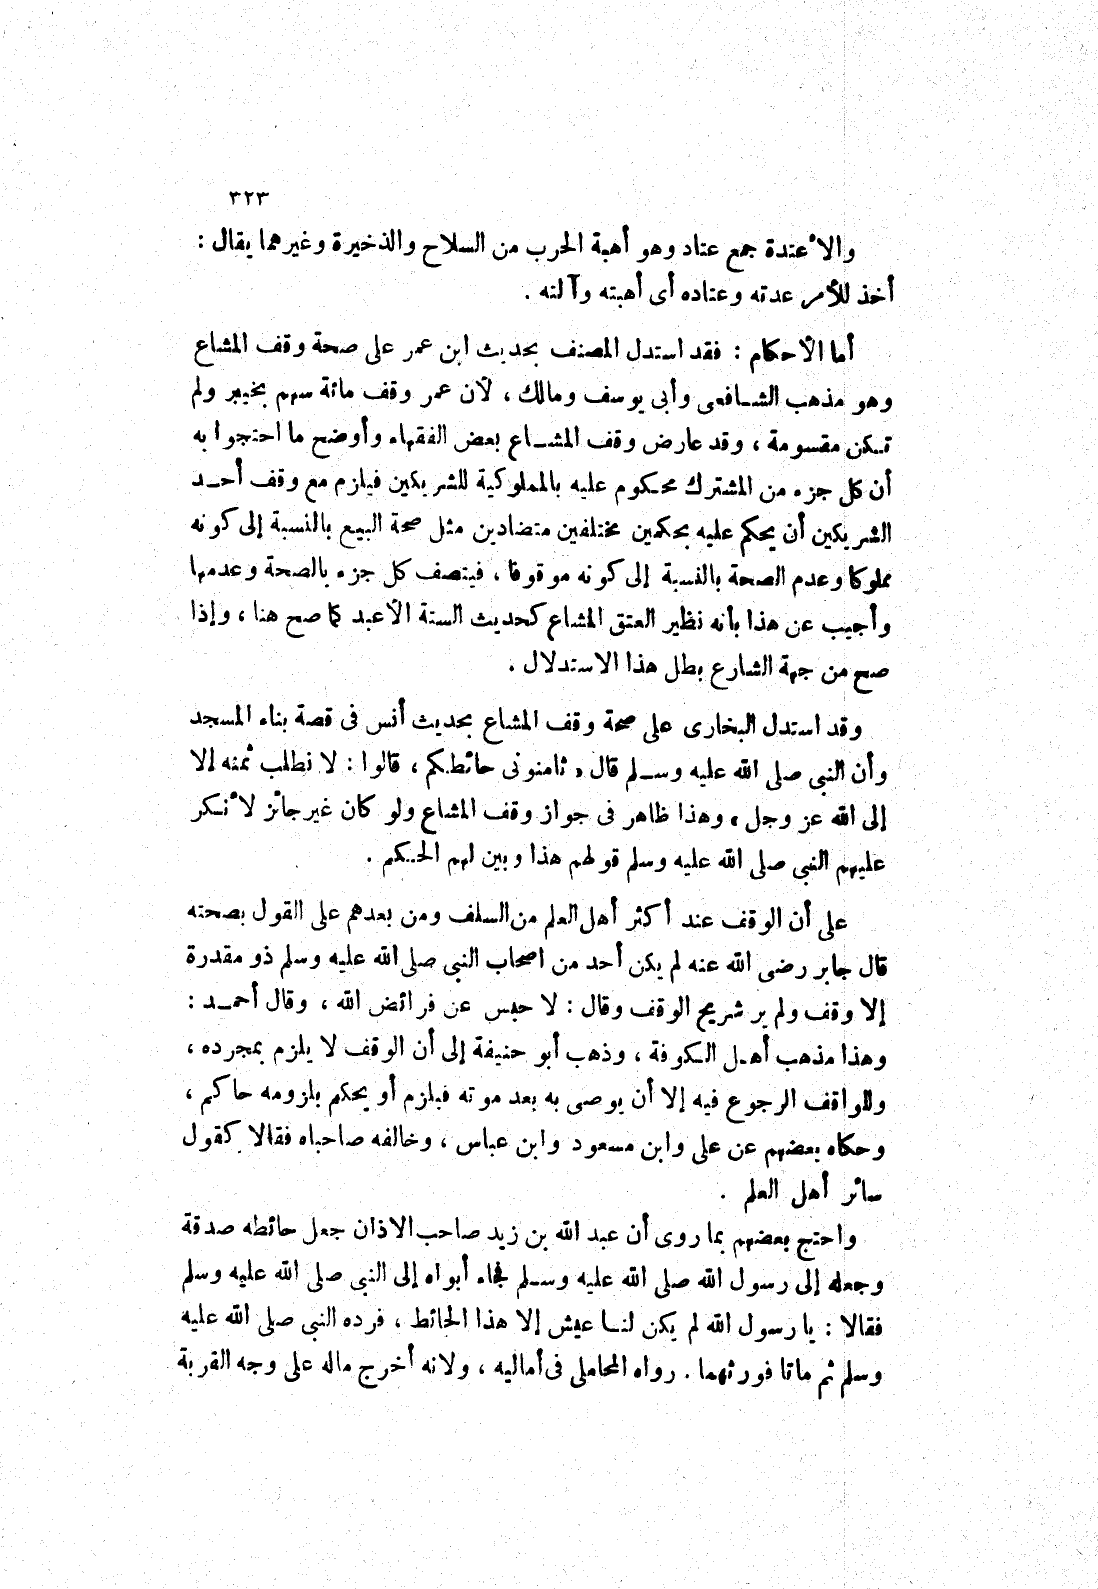 ٣٢٣
والأعتدة جمع عتاد وهو أهبة الحرب من السلاح والذخيرة وغيرهما يقال :
أخذ للأمر عدته وعتاده أى أهبته وآلته .
أما الأحكام : فقد استدل المصنف بحديث ابن عمر على صحة وقف المشاع
وهو مذهب الشافعى وأبى يوسف ومالك ، لأن عمر وقف مائة سهم بخيبر ولم
تكن مقسومة ، وقد عارض وقف المشاع بعض الفقهاء وأوضح ما احتجوا به
أن كل جزء من المشترك محكوم عليه بالمملوكية للشريكين فيلزم مع وقف أحد
الشريكين أن يحكم عليه بحكمين مختلفين متضادين مثل صحة البيع بالنسبة إلى كونه
مملوكا وعدم الصحة بالنسبة إلى كونه موقوفا ، فيتصف كل جزء بالصحة وعدمها
وأجيب عن هذا بأنه نظير العتق المشاع كحديث الستة الأعبد كما صح هنا ، وإذا
صح من جهة الشارع بطل هذا الاستدلال .
وقد استدل البخارى على صحة وقف المشاع بحديث أنس فى قصة بناء المسجد
وأن النبى صلى الله عليه وسلم قال « ثامنونى حائطكم ، قالوا : لا نطلب ثمنه إلا
إلى الله عز وجل » وهذا ظاهر فى جواز وقف المشاع ولو كان غير جائز لأنكر
عليهم النبى صلى الله عليه وسلم قولهم هذا وبين لهم الحكم .
على أن الوقف عند أكثر أهل العلم من السلف ومن بعدهم على القول بصحته
قال جابر رضى الله عنه لم يكن أحد من اصحاب النبى صلى الله عليه وسلم ذو مقدرة
إلا وقف ولم ير شريح الوقف وقال : لا حبس عن فرائض الله ، وقال أحمد :
وهذا مذهب أهل الكوفة ، وذهب أبو حنيفة إلى أن الوقف لا يلزم بمجرده ،
وللواقف الرجوع فيه إلا أن يوصى به بعد موته فيلزم أو يحكم بلزومه حاكم ،
وحكاه بعضهم عن على وابن مسعود وابن عباس ، وخالفه صاحباه فقالا كقول
سائر أهل العلم .
واحتج بعضهم بما روى أن عبد الله بن زيد صاحب الاذان جعل حائطه صدقة
وجعله إلى رسول الله صلى الله عليه وسلم فجاء أبواه إلى النبى صلى الله عليه وسلم
فقالا : يا رسول الله لم يكن لنا عيش إلا هذا الحائط ، فرده النبى صلى الله عليه
وسلم ثم ماتا فورثهما . رواه المحاملى فى أماليه ، ولانه أخرج ماله على وجه القربة